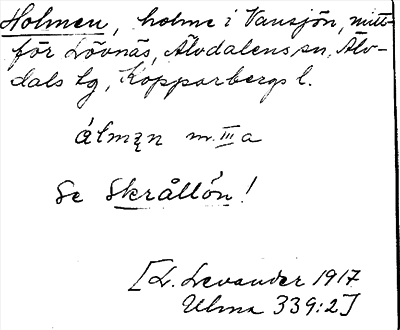 Holmen, holme i Vansjön, mitt-
för Lövnäs, Älvdalens sn, Älv-
dals tg, Kopparbergs l.
álmęn m. III a
Se Skrållön!
[L. Levander 1917
Ulma 339:2]